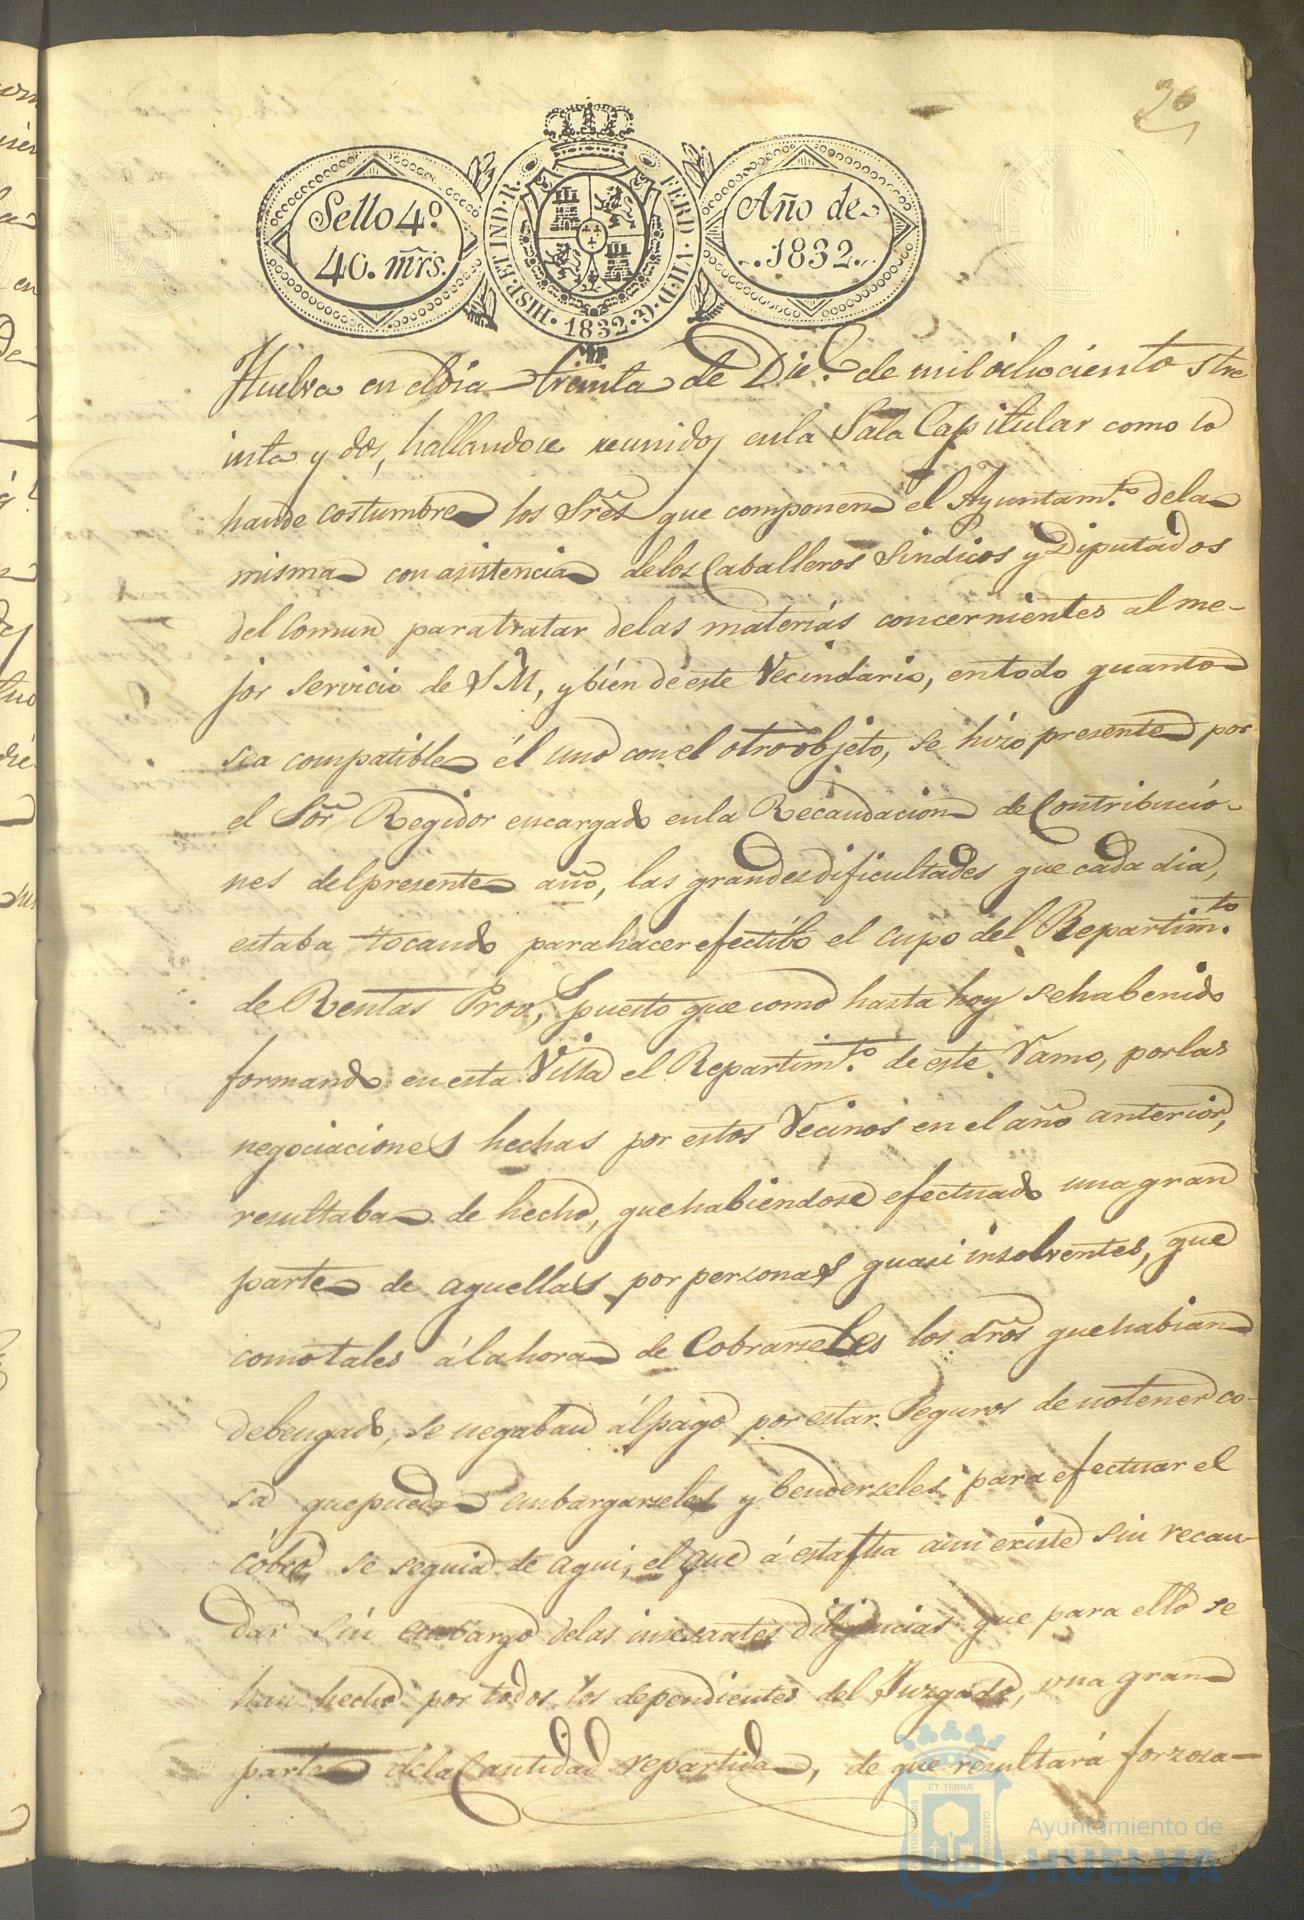 26
Sello 4º
40. mrs.
HISP. ET IND. R.
FERD. VII. D. G.
1832
Año de
1832.
Huelva en el dia treinta de Dice. de mil ochociento s tre
inta y dos, hallandose reunidos en la Sala Capitular como lo
hande costumbre los Sres que componen el Ayuntamto. dela
misma con asistencia delos Caballeros Sindicos y Diputados
del Comun para tratar delas materias concernientes al me-
jor servicio de S M, y bien de este Vecindario, entodo quanto
sea compatible él uno con el otro objeto, se hizo presente por
el Sor Regidor encargado enla Recaudacion de Contribucio-
nes delpresente año, las grandes dificultades que cada dia,
estaba tocando para hacer efectibo el cupo del Repartimto.
de Rentas Provs, puesto que como hasta hoy se ha benido
formando en esta Villa el Repartimto. de este Ramo, porlas
negociaciones hechas por estos Vecinos en el año anterior,
resultaba de hecho, que habiendose efectuado una gran
parte de aquellas por personas quasi insolventes, que
como tales á la hora de Cobrarseles los dros que habian
debengado, se negaban ál pago por estar Seguros de no tener co-
sa que pueda embargarseles y benderseles para efectuar el
cobro, se seguia de aqui, el que á esta fha aun existe sin recau-
dar sin embargo delas incesantes diligencias que para ello se
han hecho por todos los dependientes del Juzgado, una gran
parte dela Cantidad repartida, de que resultará forzosa-
ET TERRÆ
CUSTODIA
Ayuntamiento de
HUELVA